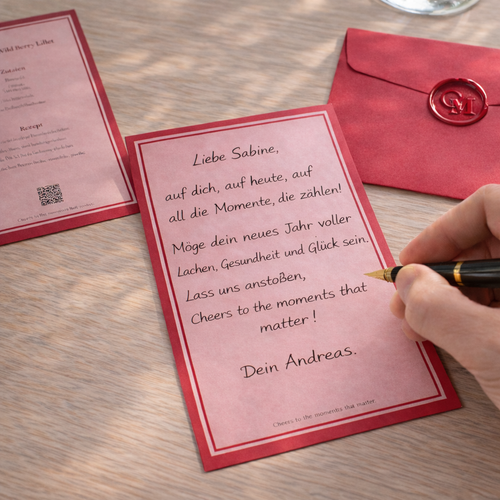 Wild Berry Lillet
Zutaten
Rezept
Liebe Sabine,
auf dich, auf heute, auf
all die Momente, die zählen!
Möge dein neues Jahr voller
Lachen, Gesundheit und Glück sein.
Lass uns anstoßen,
Cheers to the moments that
matter!
Dein Andreas.
Cheers to the moments that matter.